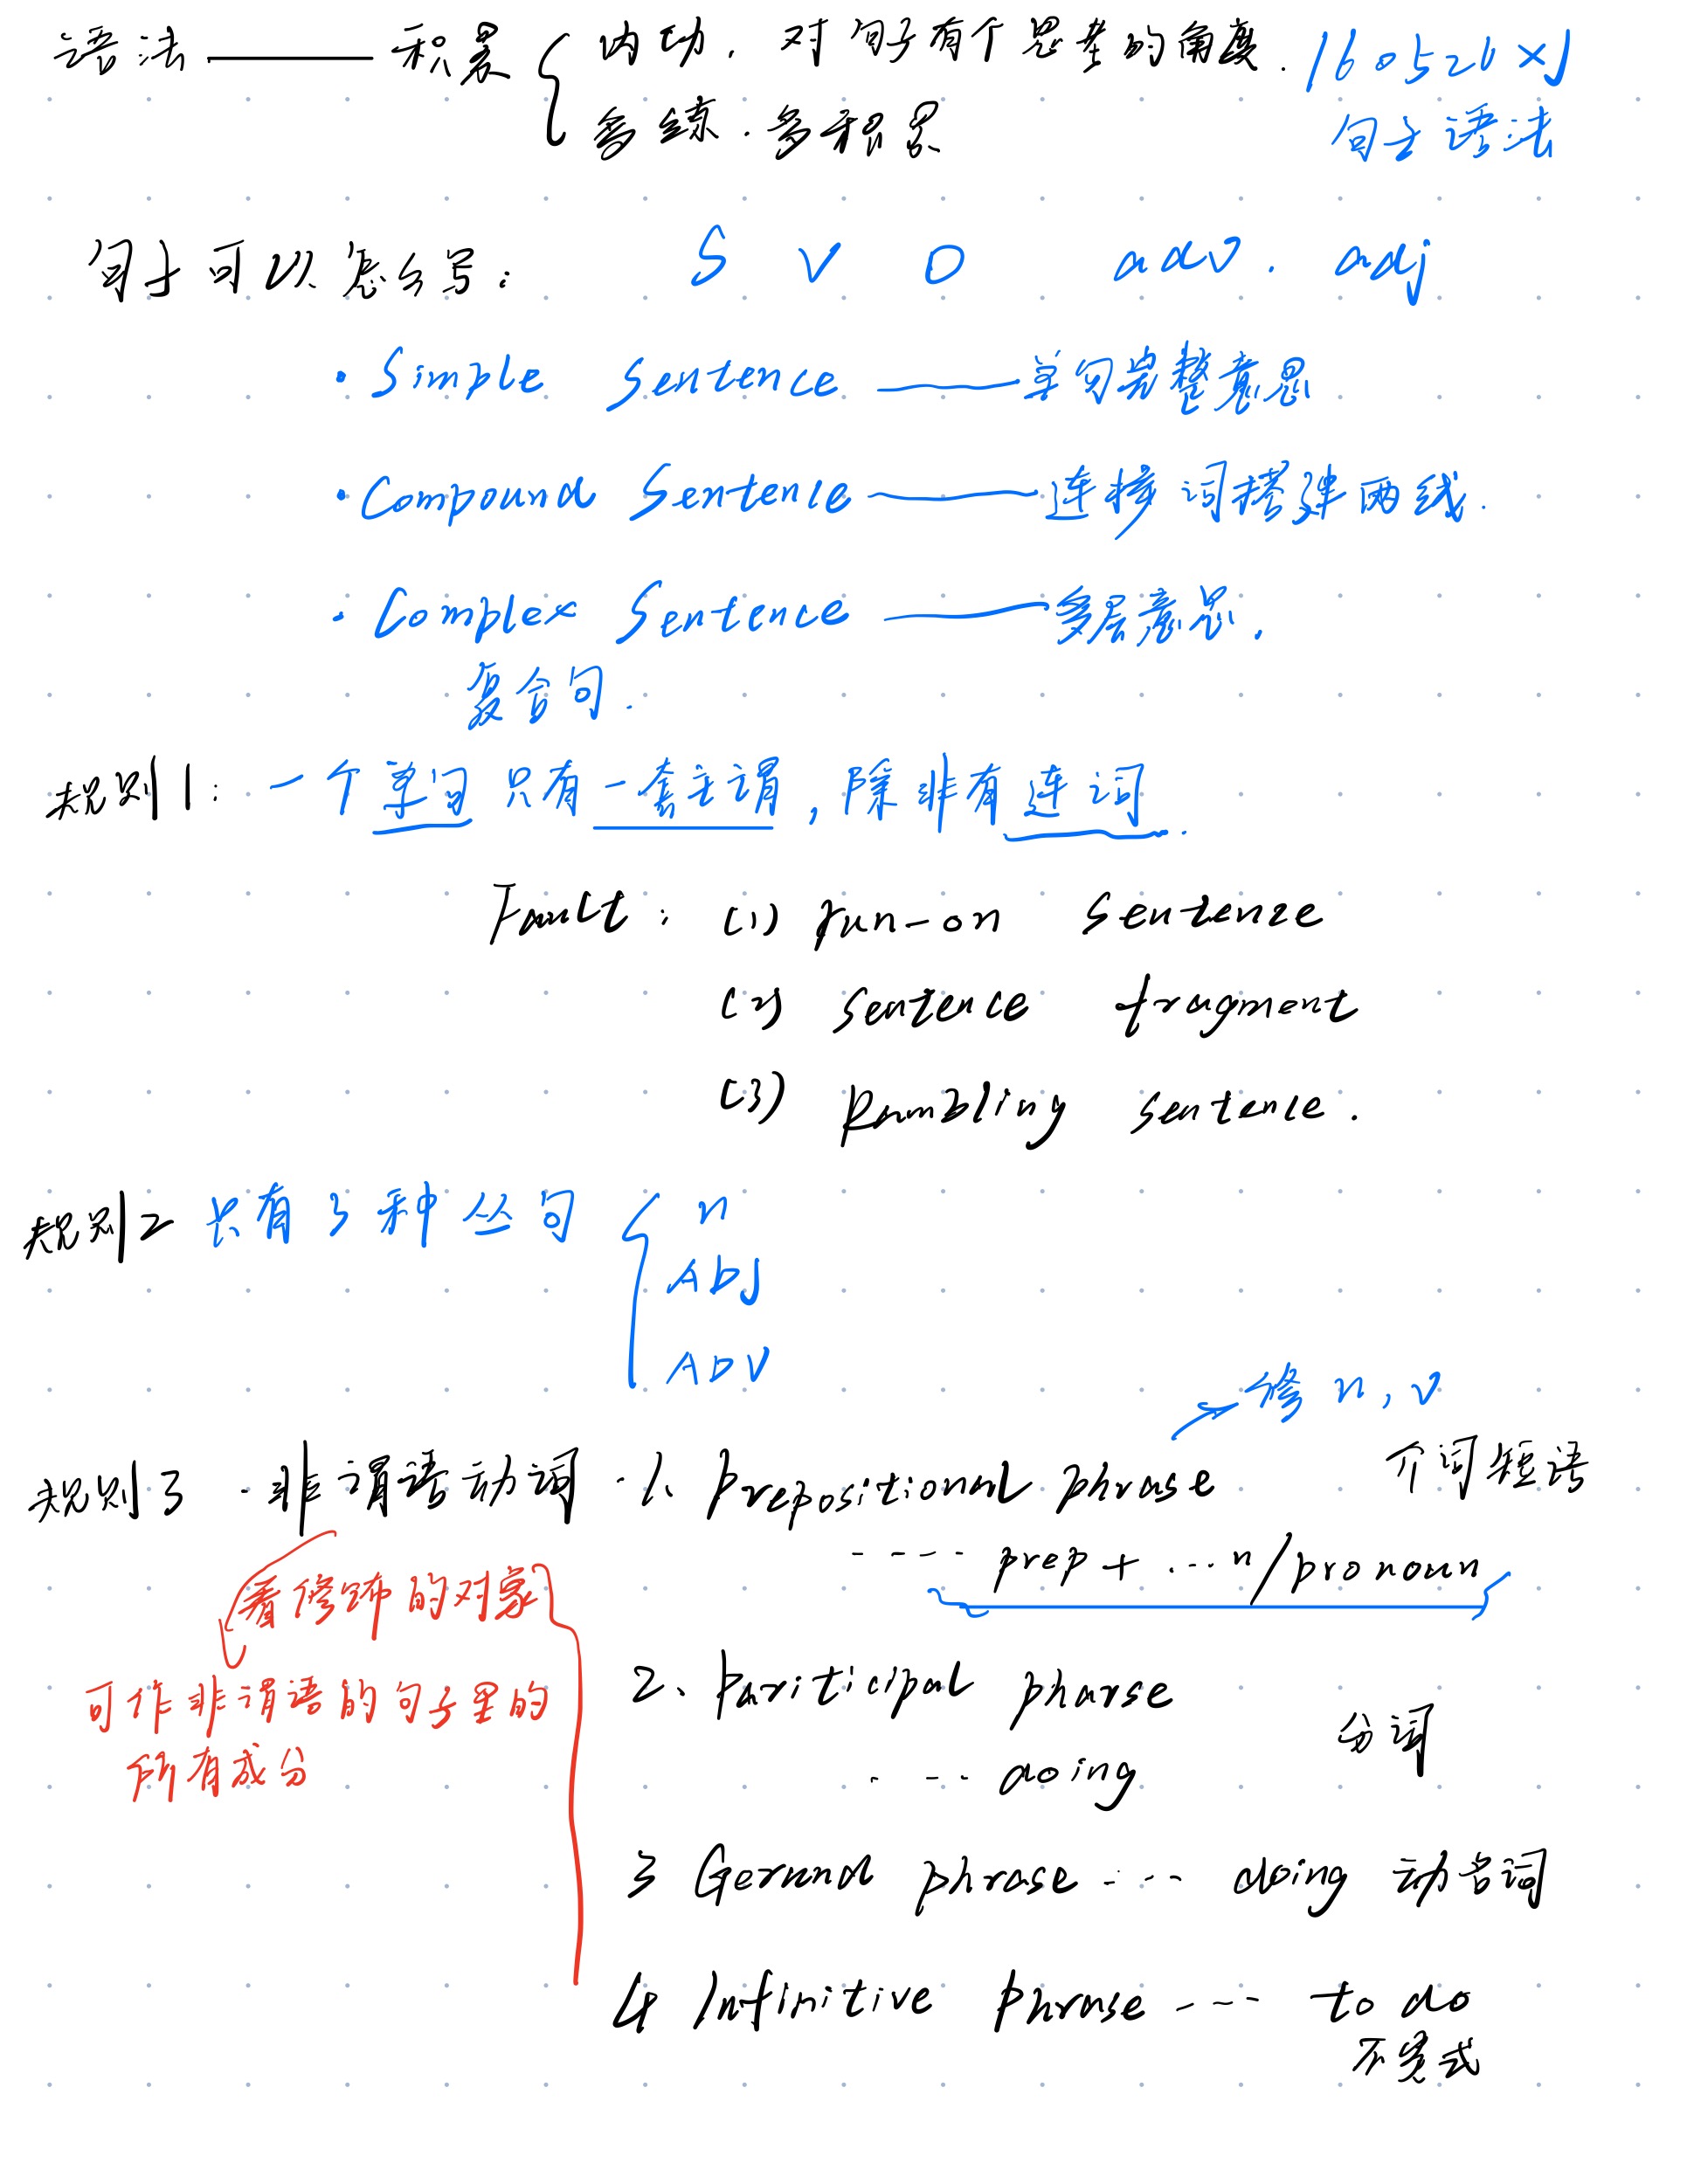 语法 —— 积累 { 内功，对句子有个思考的角度. 160526 XJ
多练．多积累 句子语法
句子可以怎么写： S V O adv. adj
· Simple Sentence —— 单句完整意思
· Compound Sentence —— 连接词搭建两线.
· Complex Sentence —— 多层意思.
复合句.
规则1: 一个单句只有一套主谓，除非有连词.
Fault: (1) run-on sentence
(2) sentence fragment
(3) Rambling sentence.
规则2 只有3种丛句 { n
ADJ
ADV
→ 修 n, v
规则3 · 非谓语动词 · 1、Prepositional phrase 介词短语
---- prep + ... n/pronoun
看修饰的对象
可作非谓语的句子里的
所有成分
2、Pariticipal pharse 分词
---- doing
3 Gerund phrase ---- doing 动名词
4 Infinitive Phrase ---- to do
不定式